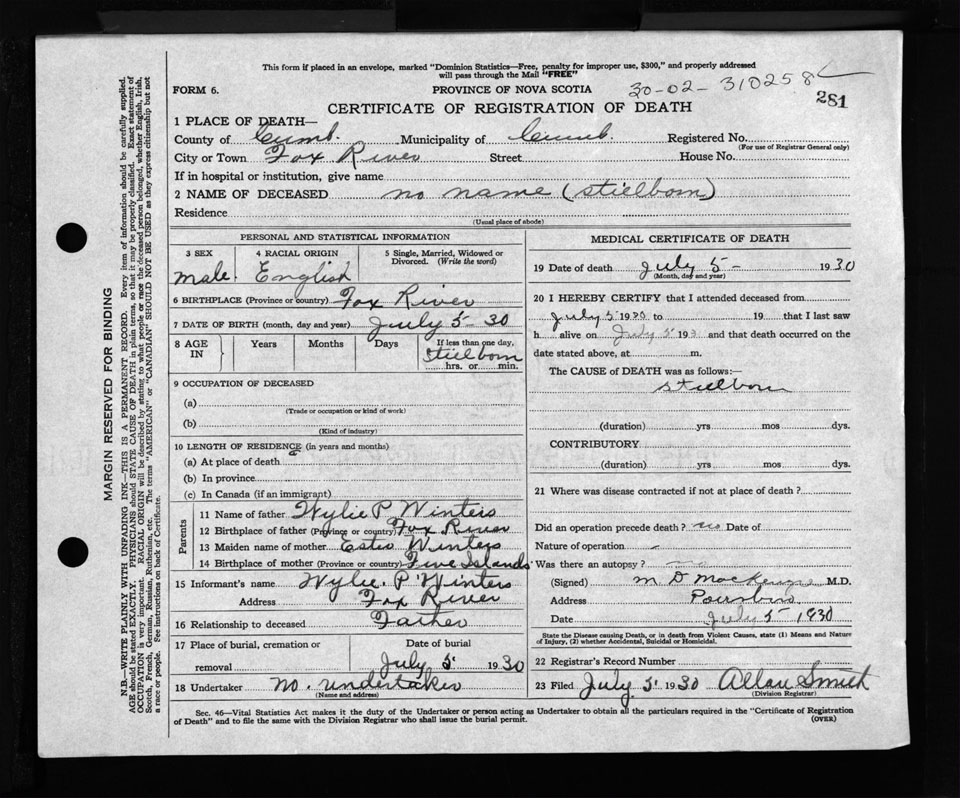 This form if placed in an envelope, marked "Dominion Statistics—Free, penalty for improper use, $300," and properly addressed
will pass through the Mail "FREE"
FORM 6.
PROVINCE OF NOVA SCOTIA
30-02-310258
281
CERTIFICATE OF REGISTRATION OF DEATH
1 PLACE OF DEATH—
County of Cumb. Municipality of Cumb. Registered No.
(For use of Registrar General only)
City or Town Fox River Street House No.
If in hospital or institution, give name
2 NAME OF DECEASED no name (stielborn)
Residence
(Usual place of abode)
PERSONAL AND STATISTICAL INFORMATION
3 SEX 4 RACIAL ORIGIN 5 Single, Married, Widowed or
Divorced. (Write the word)
male. English
6 BIRTHPLACE (Province or country) Fox River
7 DATE OF BIRTH (month, day and year) July 5 - 30
8 AGE IN Years Months Days If less than one day,
stielborn
hrs. or min.
9 OCCUPATION OF DECEASED
(a)
(Trade or occupation or kind of work)
(b)
(Kind of industry)
10 LENGTH OF RESIDENCE (in years and months)
(a) At place of death
(b) In province
(c) In Canada (if an immigrant)
Parents
11 Name of father Wylie P Winters
12 Birthplace of father (Province or country) Fox River
13 Maiden name of mother Winters
14 Birthplace of mother (Province or country) Five Islands
15 Informant's name Wylie. P Winters
Address Fox River
16 Relationship to deceased Father
17 Place of burial, cremation or Date of burial
removal July 5 1930
18 Undertaker no. undertaker
(Name and address)
MEDICAL CERTIFICATE OF DEATH
19 Date of death July 5 - 1930
(Month, day and year)
20 I HEREBY CERTIFY that I attended deceased from
July 5 1930 to 19 that I last saw
h alive on July 5 193 and that death occurred on the
date stated above, at m.
The CAUSE of DEATH was as follows:—
stielborn
(duration) yrs mos dys.
CONTRIBUTORY
(duration) yrs mos dys.
21 Where was disease contracted if not at place of death?
Did an operation precede death? no Date of
Nature of operation -
Was there an autopsy? no
(Signed) M D MacKenzie M.D.
Address
Date July 5 1930
State the Disease causing Death, or in death from Violent Causes, state (1) Means and Nature
of Injury, (2) whether Accidental, Suicidal or Homicidal.
22 Registrar's Record Number
23 Filed July 5 1930 Allan Smith
(Division Registrar)
Sec. 46—Vital Statistics Act makes it the duty of the Undertaker or person acting as Undertaker to obtain all the particulars required in the "Certificate of Registration
of Death" and to file the same with the Division Registrar who shall issue the burial permit.
(OVER)
MARGIN RESERVED FOR BINDING
N.B.—WRITE PLAINLY WITH UNFADING INK—THIS IS A PERMANENT RECORD. Every item of information should be carefully supplied.
AGE should be stated EXACTLY. PHYSICIANS should STATE CAUSE OF DEATH in plain terms, so that it may be properly classified. Exact statement of
OCCUPATION is very important. RACIAL ORIGIN will be described by stating to what people or race the deceased person belonged, whether English, Irish,
Scotch, French, German, Russian, Ruthenian, etc. The terms "AMERICAN" or "CANADIAN" SHOULD NOT BE USED as they express citizenship but not
a race or people. See instructions on back of Certificate.